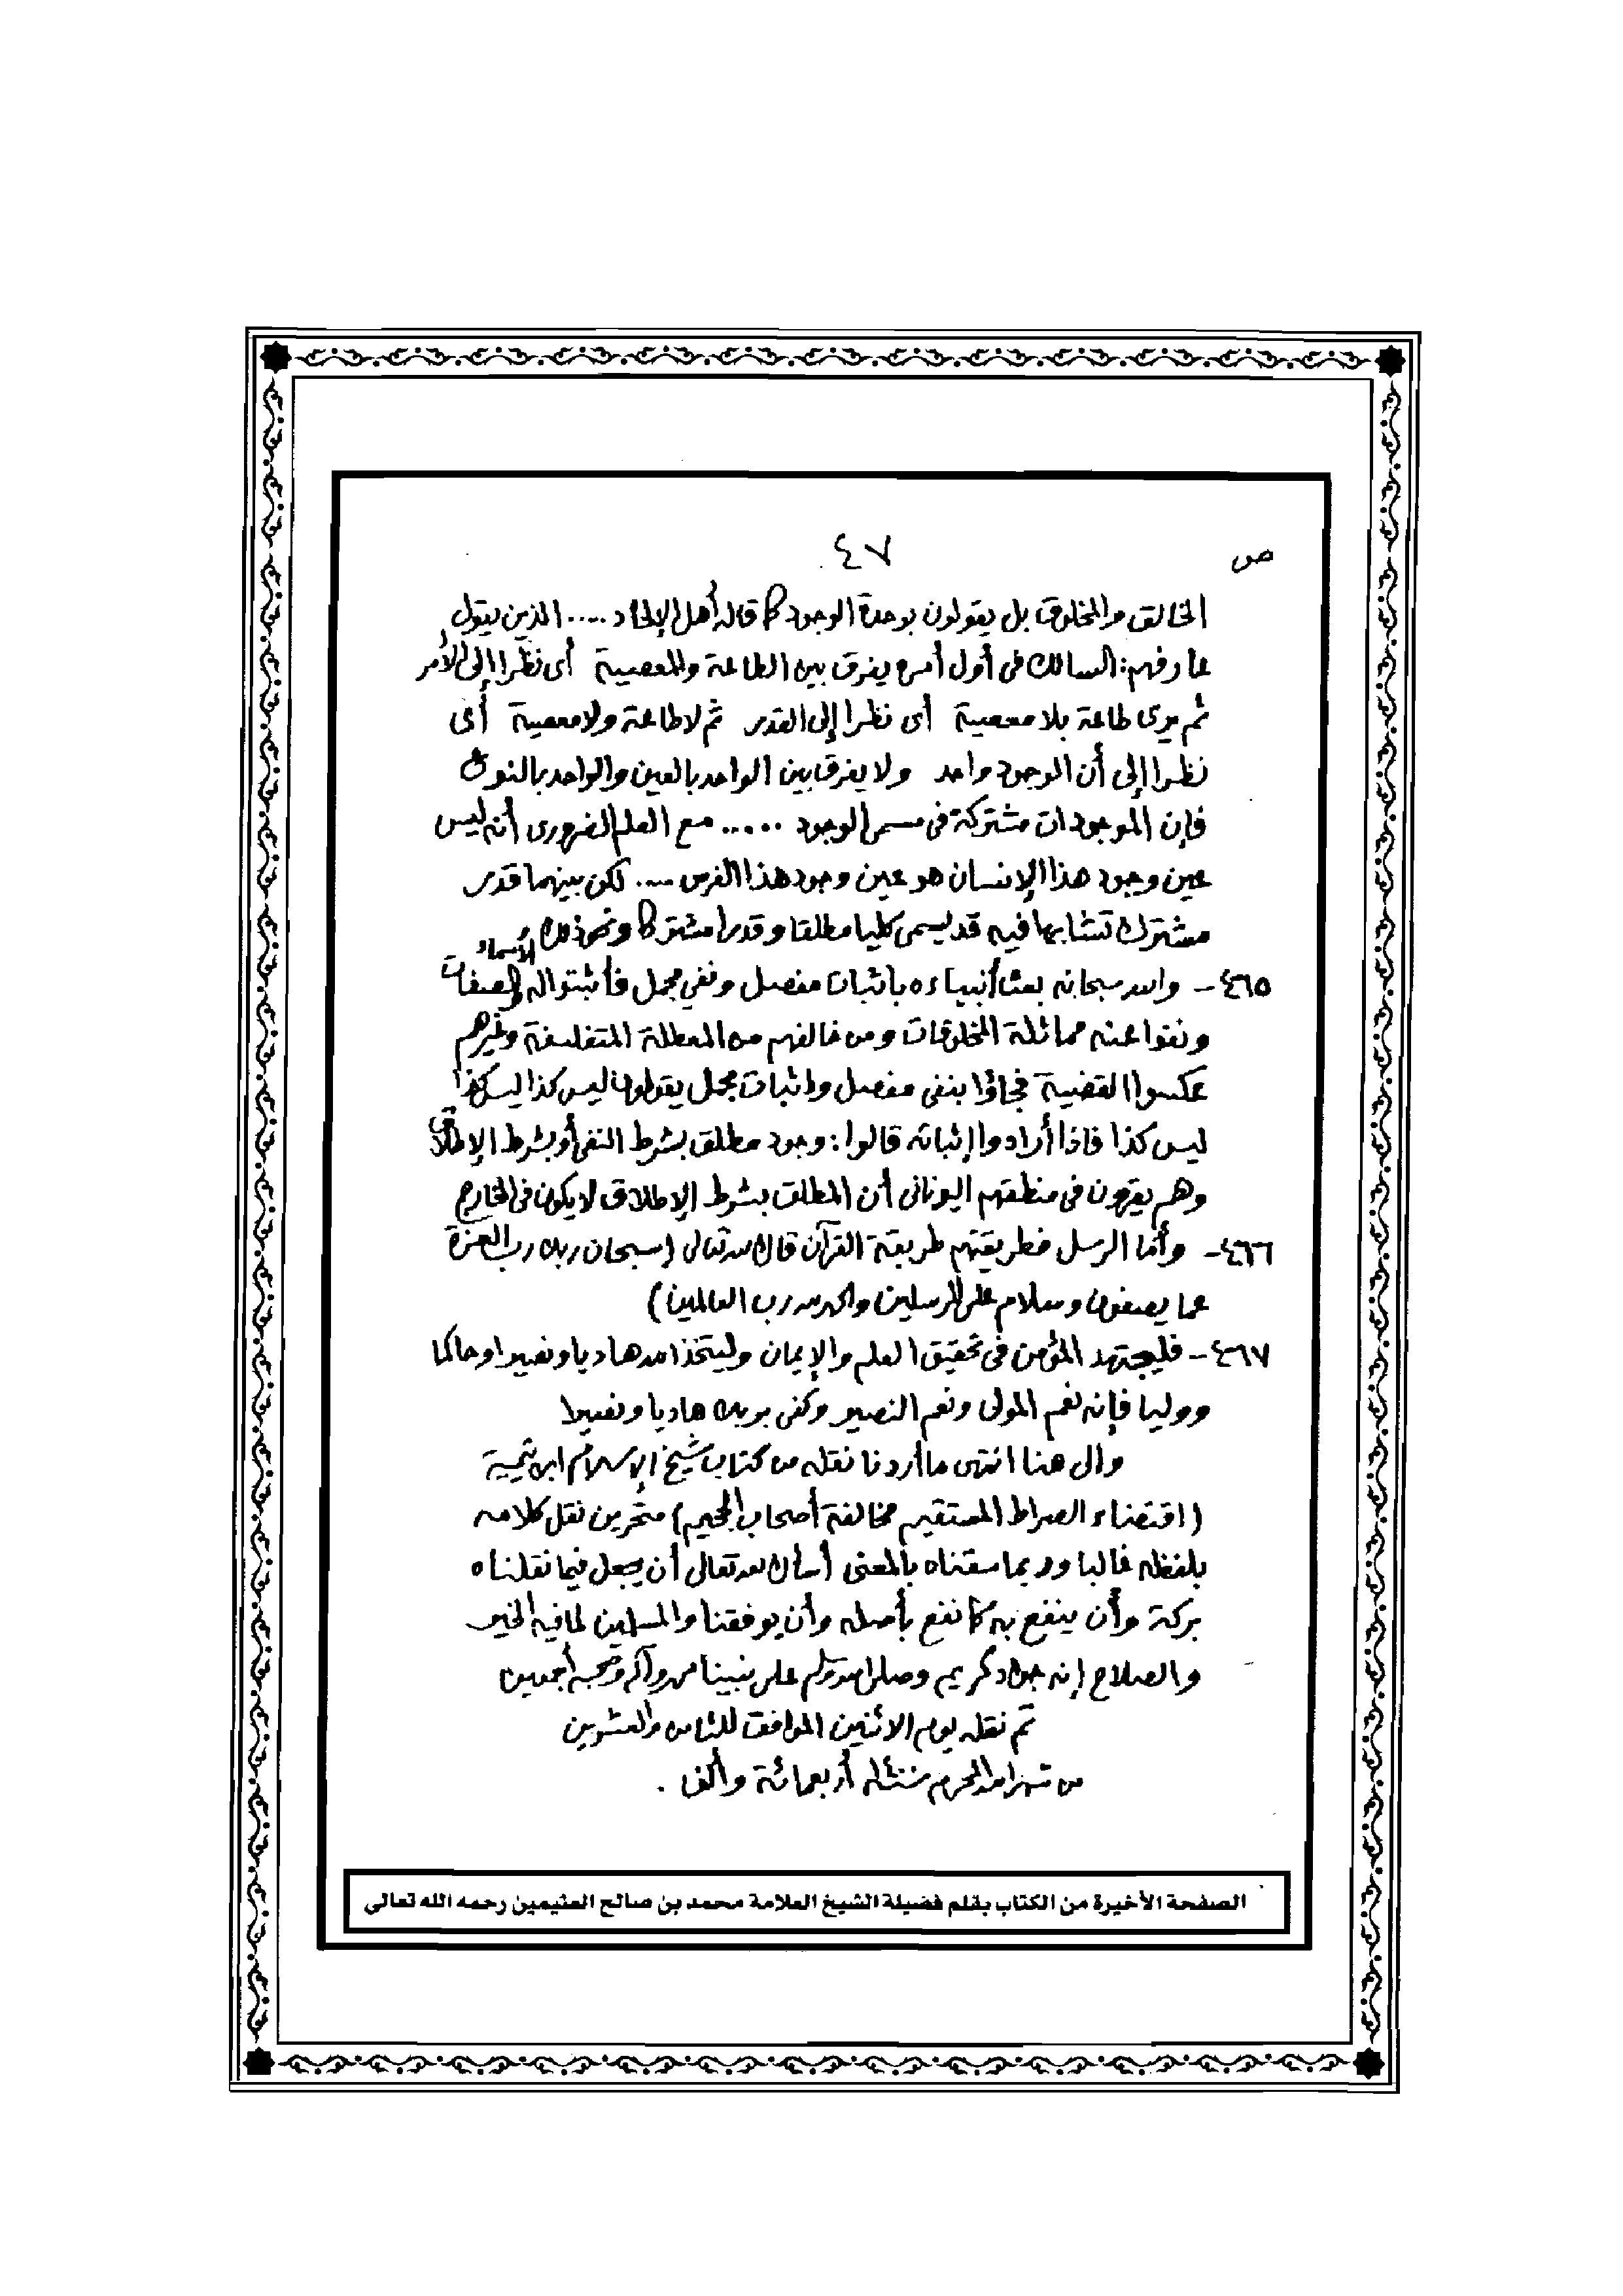 ص ٤٧
الخالق والمخلوق بل يقولون بوحدة الوجود كما قاله أهل الإلحاد .... الذين يقول
عارفهم: السالك في أول أمره يفرق بين الطاعة والمعصية أي نظرا إلى الأمر
ثم يرى طاعة بلا معصية أي نظرا إلى القدر ثم لا طاعة ولا معصية أي
نظرا إلى أن الوجود واحد ولا يفرق بين الواحد بالعين والواحد بالنوع
فإن الموجودات مشتركة في مسمى الوجود ..... مع العلم الضروري أنه ليس
عين وجود هذا الإنسان هو عين وجود هذا الفرس .... لكن بينهما قدر
مشترك تشابها فيه قد يسمى كليا مطلقا وقدرا مشتركا ونحو ذلك
٤٦٥ - والله سبحانه بعث أنبياءه بإثبات مفصل ونفي مجمل فأثبتوا له الأسماء والصفات
ونفوا عنه مماثلة المخلوقات ومن خالفهم من المعطلة المتفلسفة وغيرهم
عكسوا القضية فجاؤا بنفي مفصل وإثبات مجمل يقولون ليس كذا ليس كذا
ليس كذا فإذا أرادوا إثباته قالوا: وجود مطلق بشرط النفي أو بشرط الإطلاق
وهم يقرون في منطقهم اليوناني أن المطلق بشرط الإطلاق لا يكون في الخارج
٤٦٦ - وأما الرسل فطريقتهم طريقة القرآن قال الله تعالى (سبحان ربك رب العزة
عما يصفون وسلام على المرسلين والحمد لله رب العالمين)
٤٦٧ - فليجتهد المؤمن في تحقيق العلم والإيمان وليتخذ الله هاديا ونصيرا وحاكما
ووليا فإنه نعم المولى ونعم النصير وكفى بربك هاديا ونصيرا
وإلى هنا انتهى ما أردنا نقله من كتاب شيخ الإسلام ابن تيمية
(اقتضاء الصراط المستقيم مخالفة أصحاب الجحيم) متحرين نقل كلامه
بلفظه غالبا وربما سقناه بالمعنى أسأل الله تعالى أن يجعل فيما نقلناه
بركة وأن ينفع به كما نفع بأصله وأن يوفقنا والمسلمين لما فيه الخير
والصلاح إنه جواد كريم وصلى الله وسلم على نبينا محمد وآله وصحبه أجمعين
تم نقله يوم الاثنين الموافق للثامن والعشرين
من شهر الله المحرم سنة ١٤٠٠ أربعمائة وألف .
الصفحة الأخيرة من الكتاب بقلم فضيلة الشيخ العلامة محمد بن صالح العثيمين رحمه الله تعالى